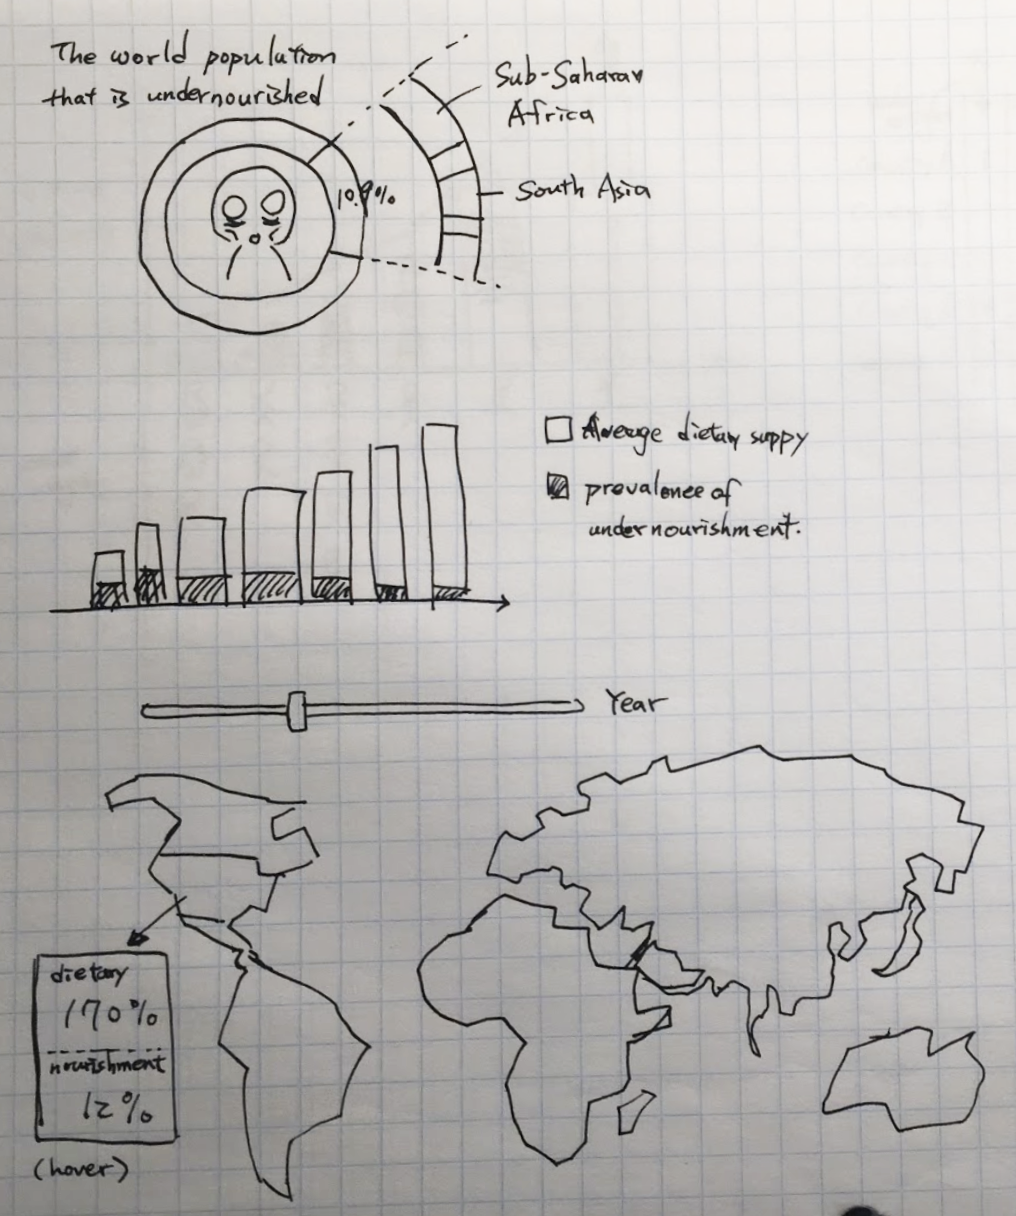 The world population
that is undernourished
Sub-Saharan
Africa
10.9%
South Asia
Average dietary suppy
prevalence of
undernourishment.
Year
dietary
170%
nourishment
12%
(hover)